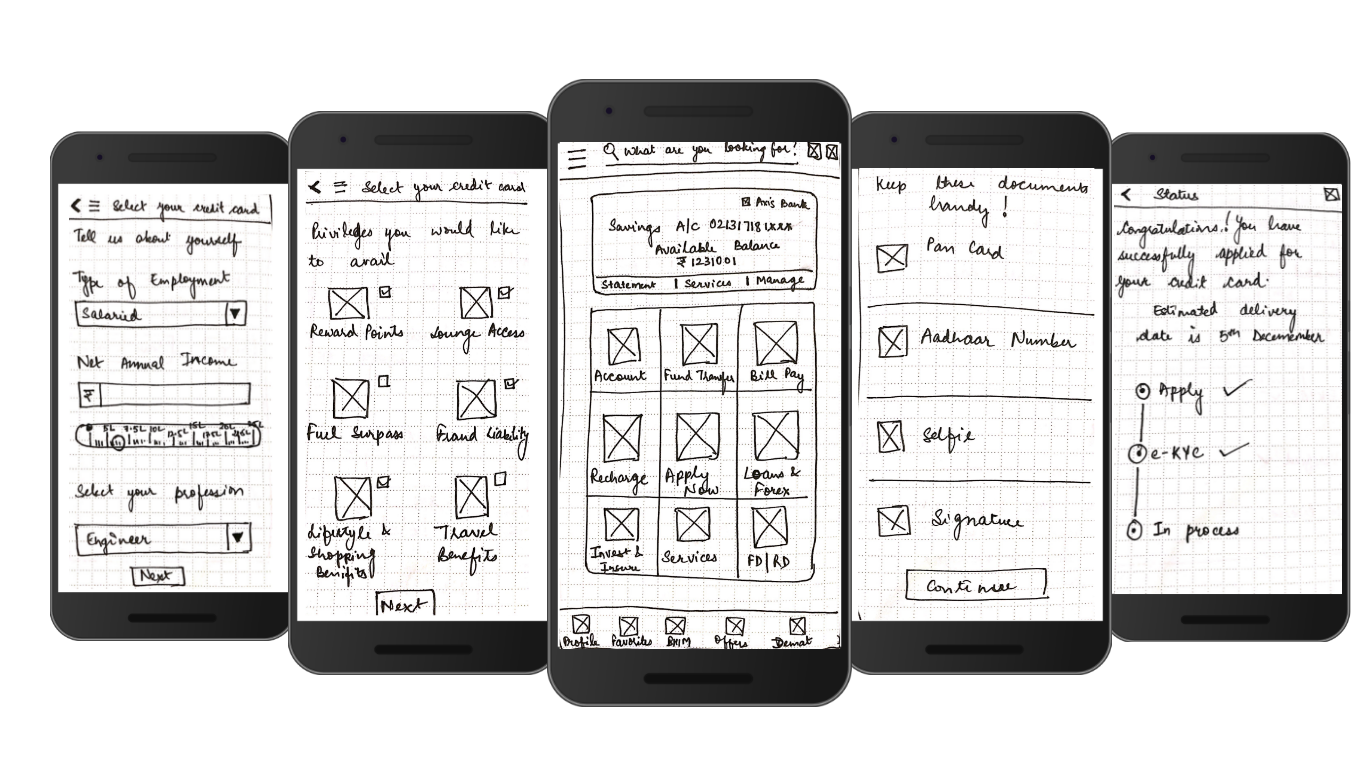 Select your credit card
Tell us about yourself
Type of Employment
Salaried
Net Annual Income
₹
5L 7.5L 10L 12.5L 15L 17.5L 20L
Select your profession
Engineer
Next
Select your credit card
Privileges you would like
to avail
Reward Points Lounge Access
Fuel Surpass Fraud Liability
Lifestyle & Travel
Shopping Benefits
Benifits
Next
What are you looking for?
Axis Bank
Savings A/c 02131718 1xxx
Available Balance
₹ 1231001
Statement | Services | Manage
Account Fund Transfer Bill Pay
Recharge Apply Loans &
Now Forex
Invest & Services FD|RD
Insure
Profile Favorites BHIM Offers Demat
Keep these documents
handy!
Pan Card
Aadhaar Number
Selfie
Signature
Continue
Status
Congratulations! You have
successfully applied for
your credit card.
Estimated delivery
date is 5th Decemember
Apply
e-KYC
In process